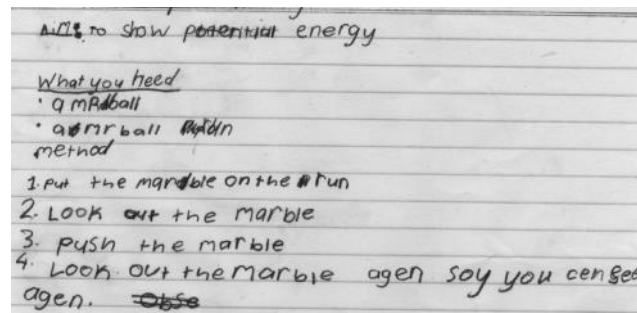 Aim: to show potential energy
What you need
• a mRdball
• a mrball
method
1. Put the mardble on the run
2. Look out the marble
3. push the marble
4. Look out the marble agen soy you cen see
agen. Obse